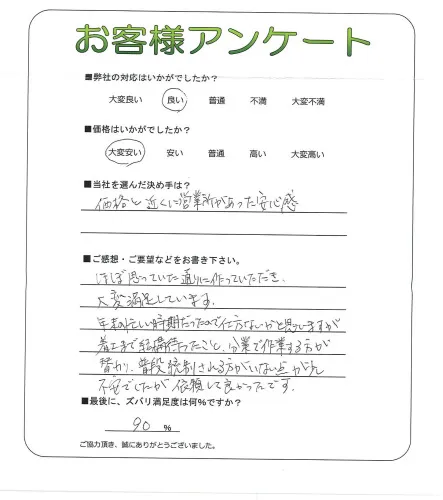 お客様アンケート
■弊社の対応はいかがでしたか？
大変良い 良い 普通 不満 大変不満
■価格はいかがでしたか？
大変安い 安い 普通 高い 大変高い
■当社を選んだ決め手は？
価格と近くに営業所があった安心感
■ご感想・ご要望などをお書き下さい。
ほぼ思っていた通りに作っていただき、
大変満足しています。
年末の忙しい時期だったので仕方ないかと思っていますが
着工まで結構待ったこと、分業で作業する方が
替わり、普段統制される方がいない点が少し
不安でしたが依頼して良かったです。
■最後に、ズバリ満足度は何%ですか？
90 %
ご協力頂き、誠にありがとうございました。